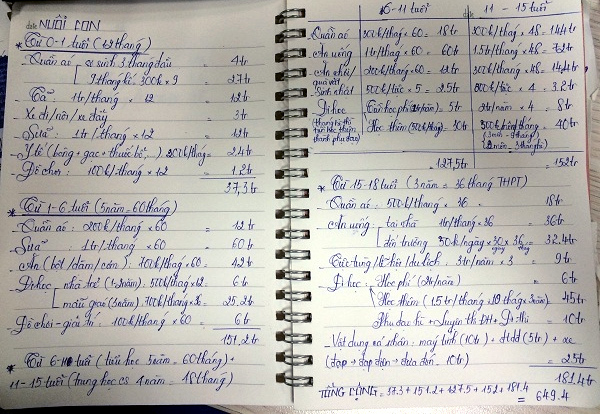 date NUÔI CON
* Từ 0-1 tuổi (12 tháng)
- Quần áo: sơ sinh 3 tháng đầu = 4tr
9 tháng kế: 300k x 9 = 2.7tr
- Tã 1tr/tháng x 12 = 12tr
- Xe đi/nôi/xe đẩy = 3tr
- Sữa: 1tr/tháng x 12 = 12tr
- Y tế (bông + gạc + thuốc bổ,..) 200k/tháng = 2.4tr
- Đồ chơi: 100k/tháng x 12 = 1.2tr
37,3tr
* Từ 1-6 tuổi (5 năm = 60 tháng)
- Quần áo: 200k/tháng x 60 = 12tr
- Sữa: 1tr/tháng x 60 = 60tr
- Ăn (bột/dặm/cơm): 700k/tháng x 60 = 42tr
- Đi học: nhà trẻ (1-2 năm): 500k/tháng x 12 = 6tr
mẫu giáo (3 năm): 700k/tháng x 36 = 25.2tr
- Đồ chơi - giải trí: 100k/tháng x 60 = 6tr
151,2tr
* Từ 6-10 tuổi (tiểu học 5 năm = 60 tháng) +
11-15 tuổi (trung học cs 4 năm = 48 tháng)
6-11 tuổi date 11 - 15 tuổi
Quần áo 300k/tháng x 60 = 18tr 300k/tháng x 48 = 14.4tr
Ăn uống 1tr/tháng x 60 = 60tr 1.5tr/tháng x 48 = 72tr
Ăn chơi/quà vặt 200k/tháng x 60 = 12tr 300k/tháng x 48 = 14.4tr
Sinh nhật 500k/tức x 5 = 2.5tr 800k/tức x 4 = 3.2tr
Đi học Tiền học phí = 5tr 2tr/năm x 4 = 8tr
Học thêm (500k/tháng) = 30tr = 40tr
127,5tr 152tr
* Từ 15-18 tuổi (3 năm = 36 tháng THPT)
- Quần áo: 500k/tháng x 36 = 18tr
- Ăn uống: tại nhà 1tr/tháng x 36 = 36tr
đi trường 30k/ngày x 30 ngày x 36 tháng = 32.4tr
hè/du lịch 3tr/năm x 3 = 9tr
- Đi học: Học phí (2tr/năm) = 6tr
Học thêm (1.5tr/tháng x 10 tháng x 3 năm) 45tr
+ luyện thi ĐH + = 10tr
- Vật dụng cá nhân: máy tính (10tr) + dtdd (5tr) + xe
(đạp → đạp điện → 10tr) = 25tr
181.4tr
TỔNG CỘNG = 37.3 + 151.2 + 127.5 + 152 + 181.4
= 649.4